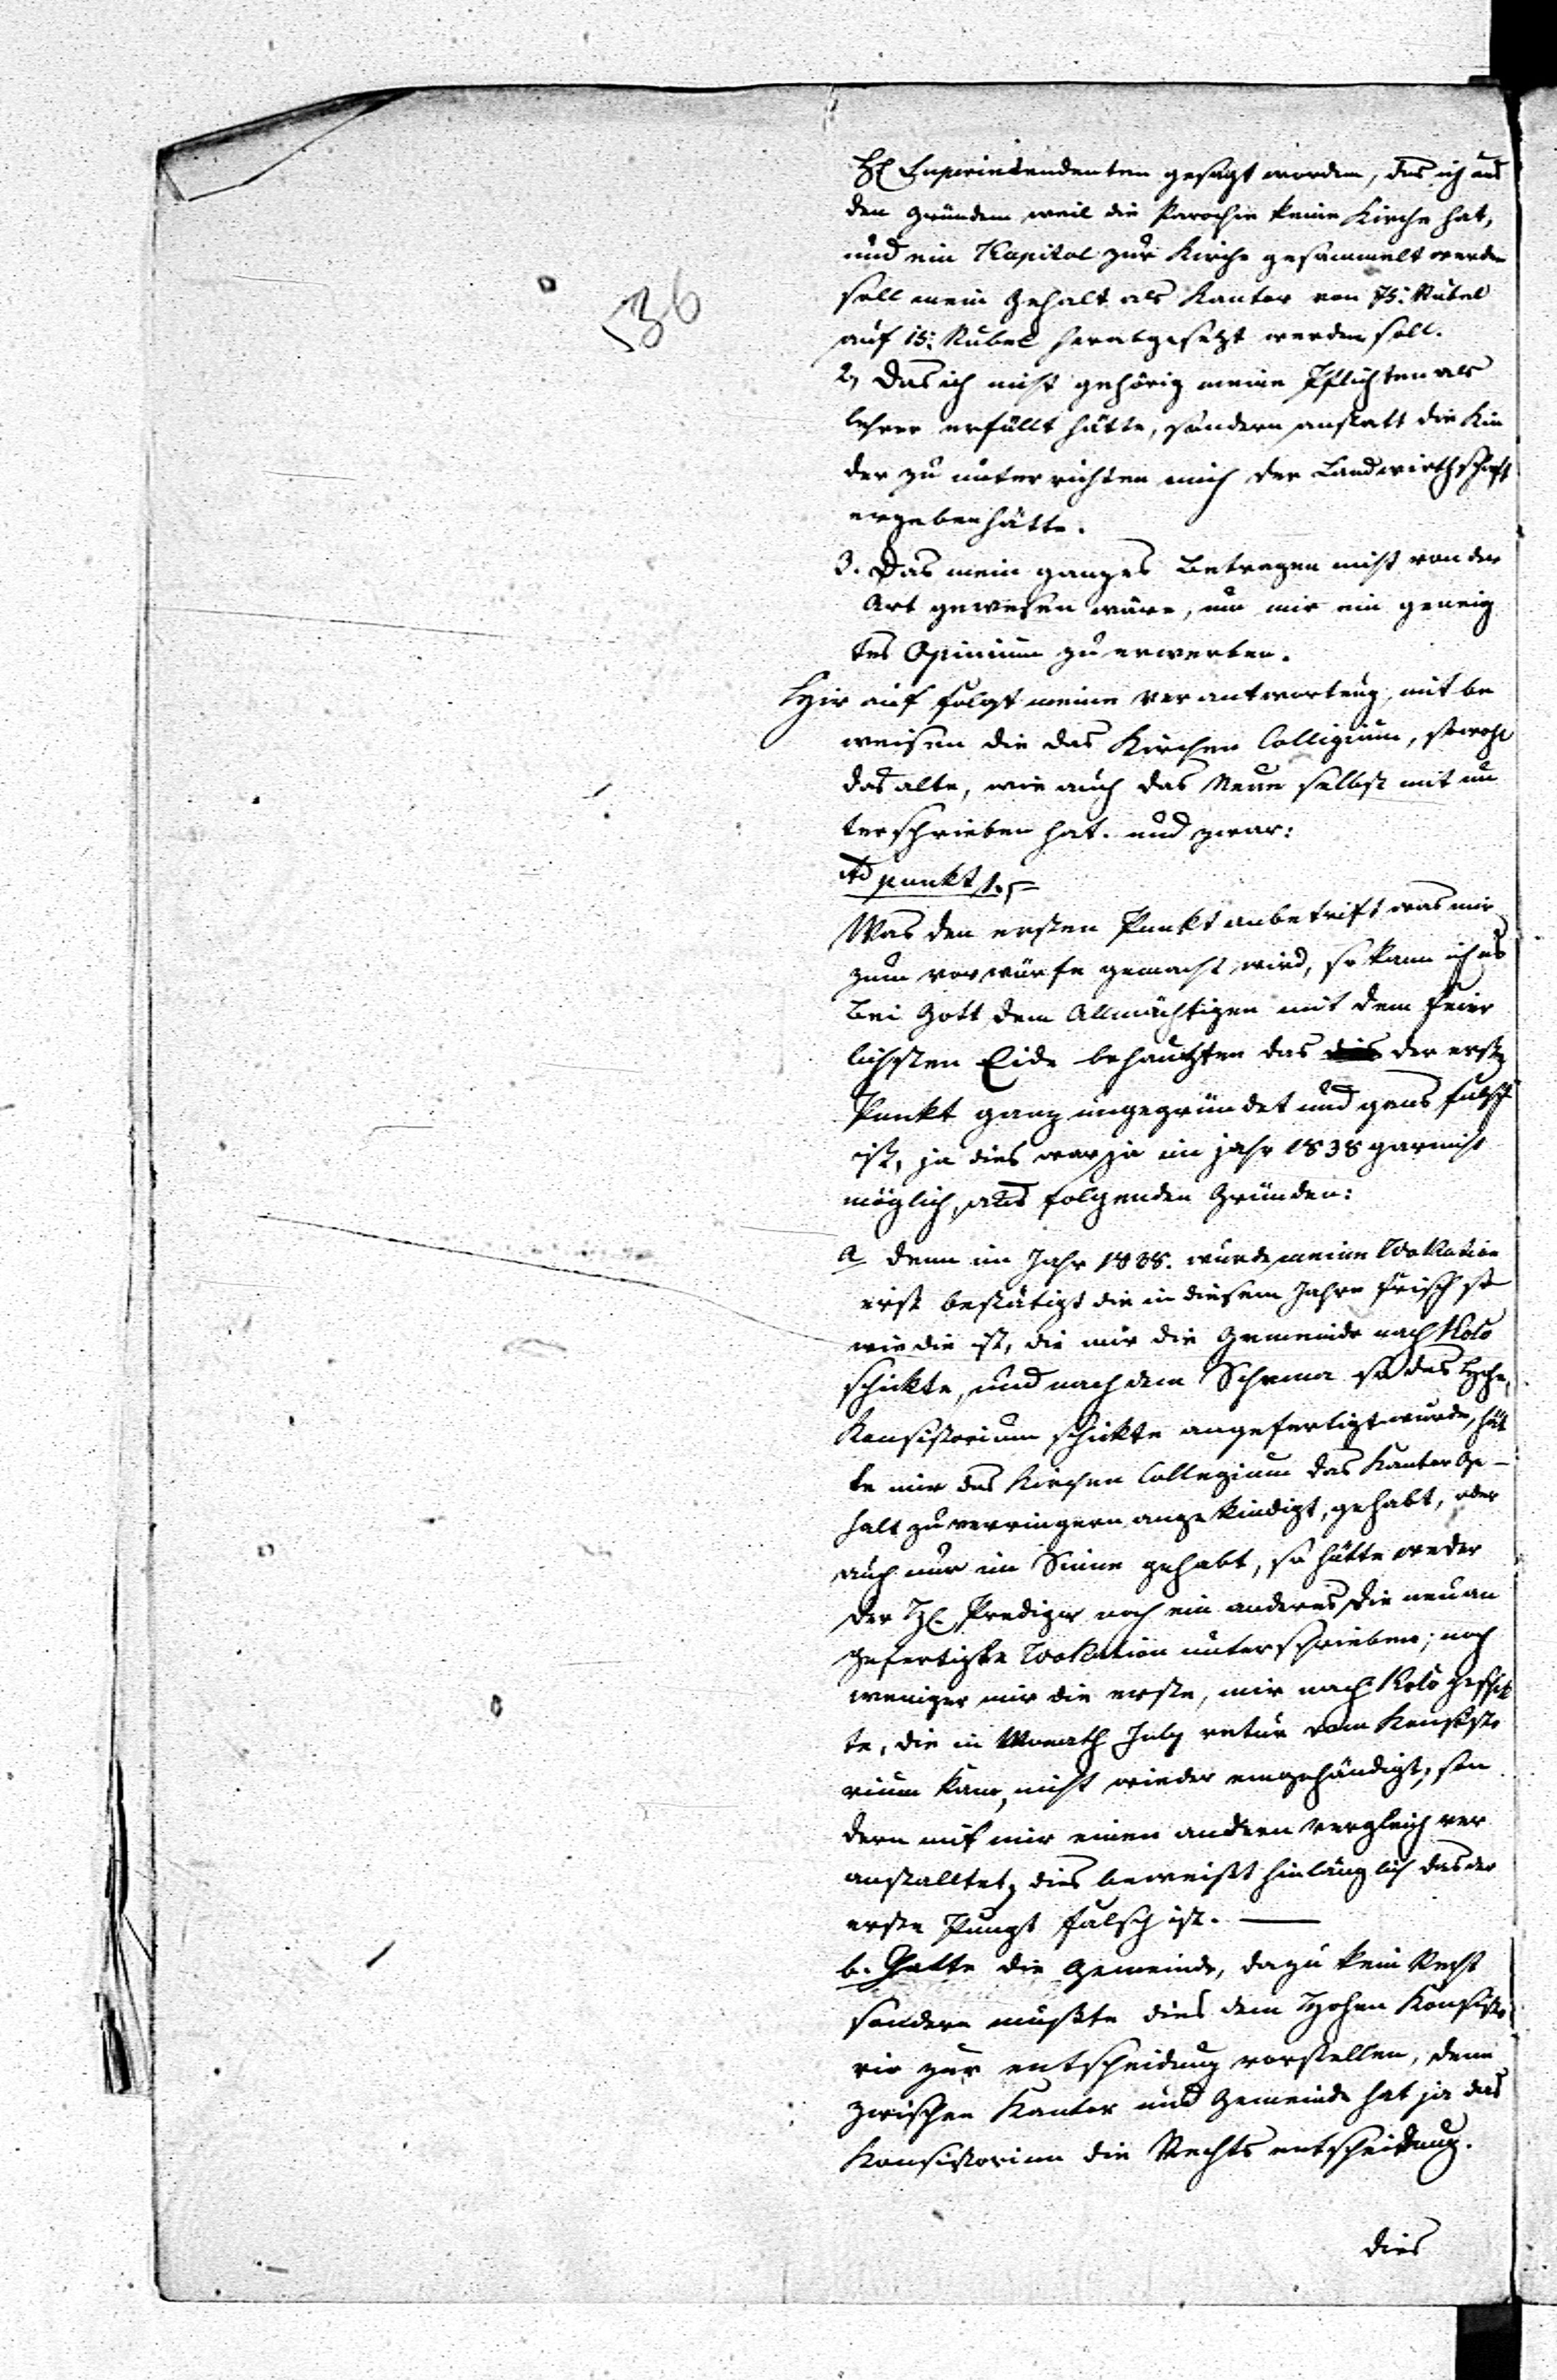 536
H. Superintendenten gesagt worden, das ich aus
den Gründen weil die Parochie keine Kirche hat,
und ein Kapital zur Kirche gesammelt werden
soll mein Gehalt als Kantor von 75. Rubel
auf 15. Rubel herabgesetzt werden soll.
2, Das ich nicht gehörig meine Pflichten als
Lehrer erfüllt hätte, sondern anstatt die Kin
der zu unterrichten mich der Landwirthschaft
ergeben hätte.
3. Das mein ganzes Betragen nicht von der
Art gewesen wäre, um mir ein geneig
tes Opinium zu erwerben.
Hir auf folgt meine Verantwortung, mit be
weisen die das Kirchen Colligium, sowohl
das alte, wie auch das Neue selbst mit un
terschrieben hat. und zwar:
Ad punkt 1.
Was den ersten Punkt anbetrift was mir
zum vorwürfe gemacht wird, so kann ich es
bei Gott dem Allmächtigen mit dem feier
lichsten Eide behaupten das der erste
Punkt ganz ungegründet und ganz falsch
ist, ja dies war ja im jahr 1838 garnicht
möglich, aus folgenden Gründen:
a denn im Jahr 1838. wurde meine Vokation
erst bestätigt die in diesem Jahre frisch so
wie die ist, die mir die Gemeinde nach Kolo
schickte, und nach dem Schema so das Hohe
Konsistorium schickte angefertigt wurde, hät
te mir das Kirchen Collegium das Kantor Ge-
halt zu verringern angekündigt, gehabt, oder
auch nur im Sinne gehabt, so hätte weder
der H. Prediger noch ein anderer die neu an
gefertigte Vokation unterschrieben; noch
weniger mir die erste, mir nach Kolo geschik
te, die in Monath July retur vom Konsisto
rium kam, nicht wieder eingehändigt, son
dern mit mir einen andern Vergleich ver
anstalltet, dies beweißt hinlänglich das der
erste Pungt falsch ist.
b. Hatte die Gemeinde, dazu kein Recht
sondern mußte dies dem Hohen Konsisto
rio zur entscheidung vorstellen, denn
zwischen Kantor und Gemeinde hat ja das
Konsistorium die Rechts entscheidung.
dies